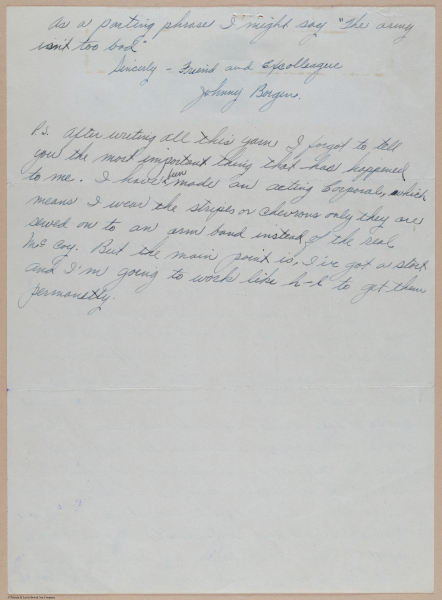 As a parting phrase I might say "The army
isn't too bad"
Sincerly - Friend and Excolleague
Johnny Borgen.
P.S. After writing all this yarn I forgot to tell
you the most important thing that has happened
to me. I have been made an acting Corporal, which
means I wear the stripes or chevrons only they are
sewed on to an arm band instead of the real
McCoy. But the main point is, I've got a start
and I'm going to work like h-l to get them
permanetly.